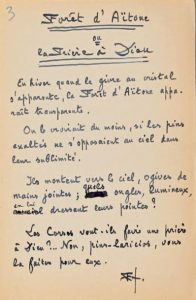 3
Forêt d'Aïtone
ou
la Prière à Dieu
En hiver quand le givre au cristal
s'apparente, la Forêt d'Aïtone appa-
raît transparente.
On le croirait du moins, si les pins
exaltés ne s'opposaient au ciel dans
leur sublimité.
Ils montent vers le ciel, ogives de
mains jointes; quels ongles, lumineux,
en lui dressent leurs pointes?
Les Corses vont-ils faire une prière
à Dieu?... Non, pins-laricios, vous
la faites pour eux.